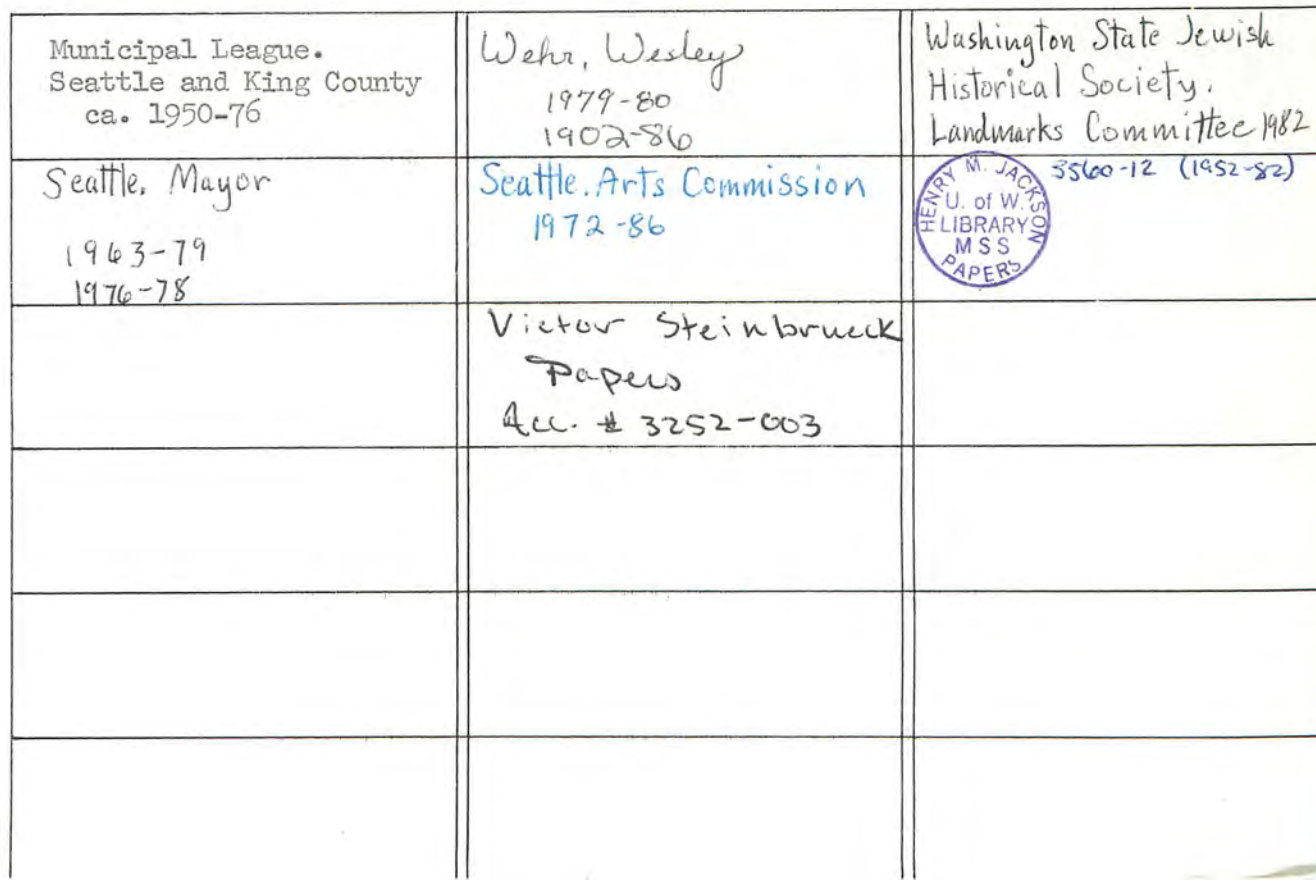 Municipal League.
Seattle and King County
ca. 1950-76
Wehr, Wesley
1979-80
1902-86
Washington State Jewish
Historical Society.
Landmarks Committee 1982
Seattle. Mayor
1963-79
1976-78
Seattle. Arts Commission
1972-86
HENRY M. JACKSON
U. of W.
LIBRARY
MSS
PAPERS
3560-12 (1952-82)
Victor Steinbrueck
Papers
Acc. # 3252-003